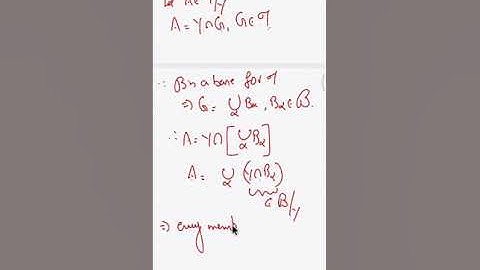 A = Y∩G, G∈𝒯
∵ B is a base for 𝒯
⇒ G = ⋃_α Bα, Bα ∈ ℬ.
∴ A = Y∩[⋃_α Bα]
A = ⋃_α (Y∩Bα)
∈ ℬ/Y
⇒ every memb